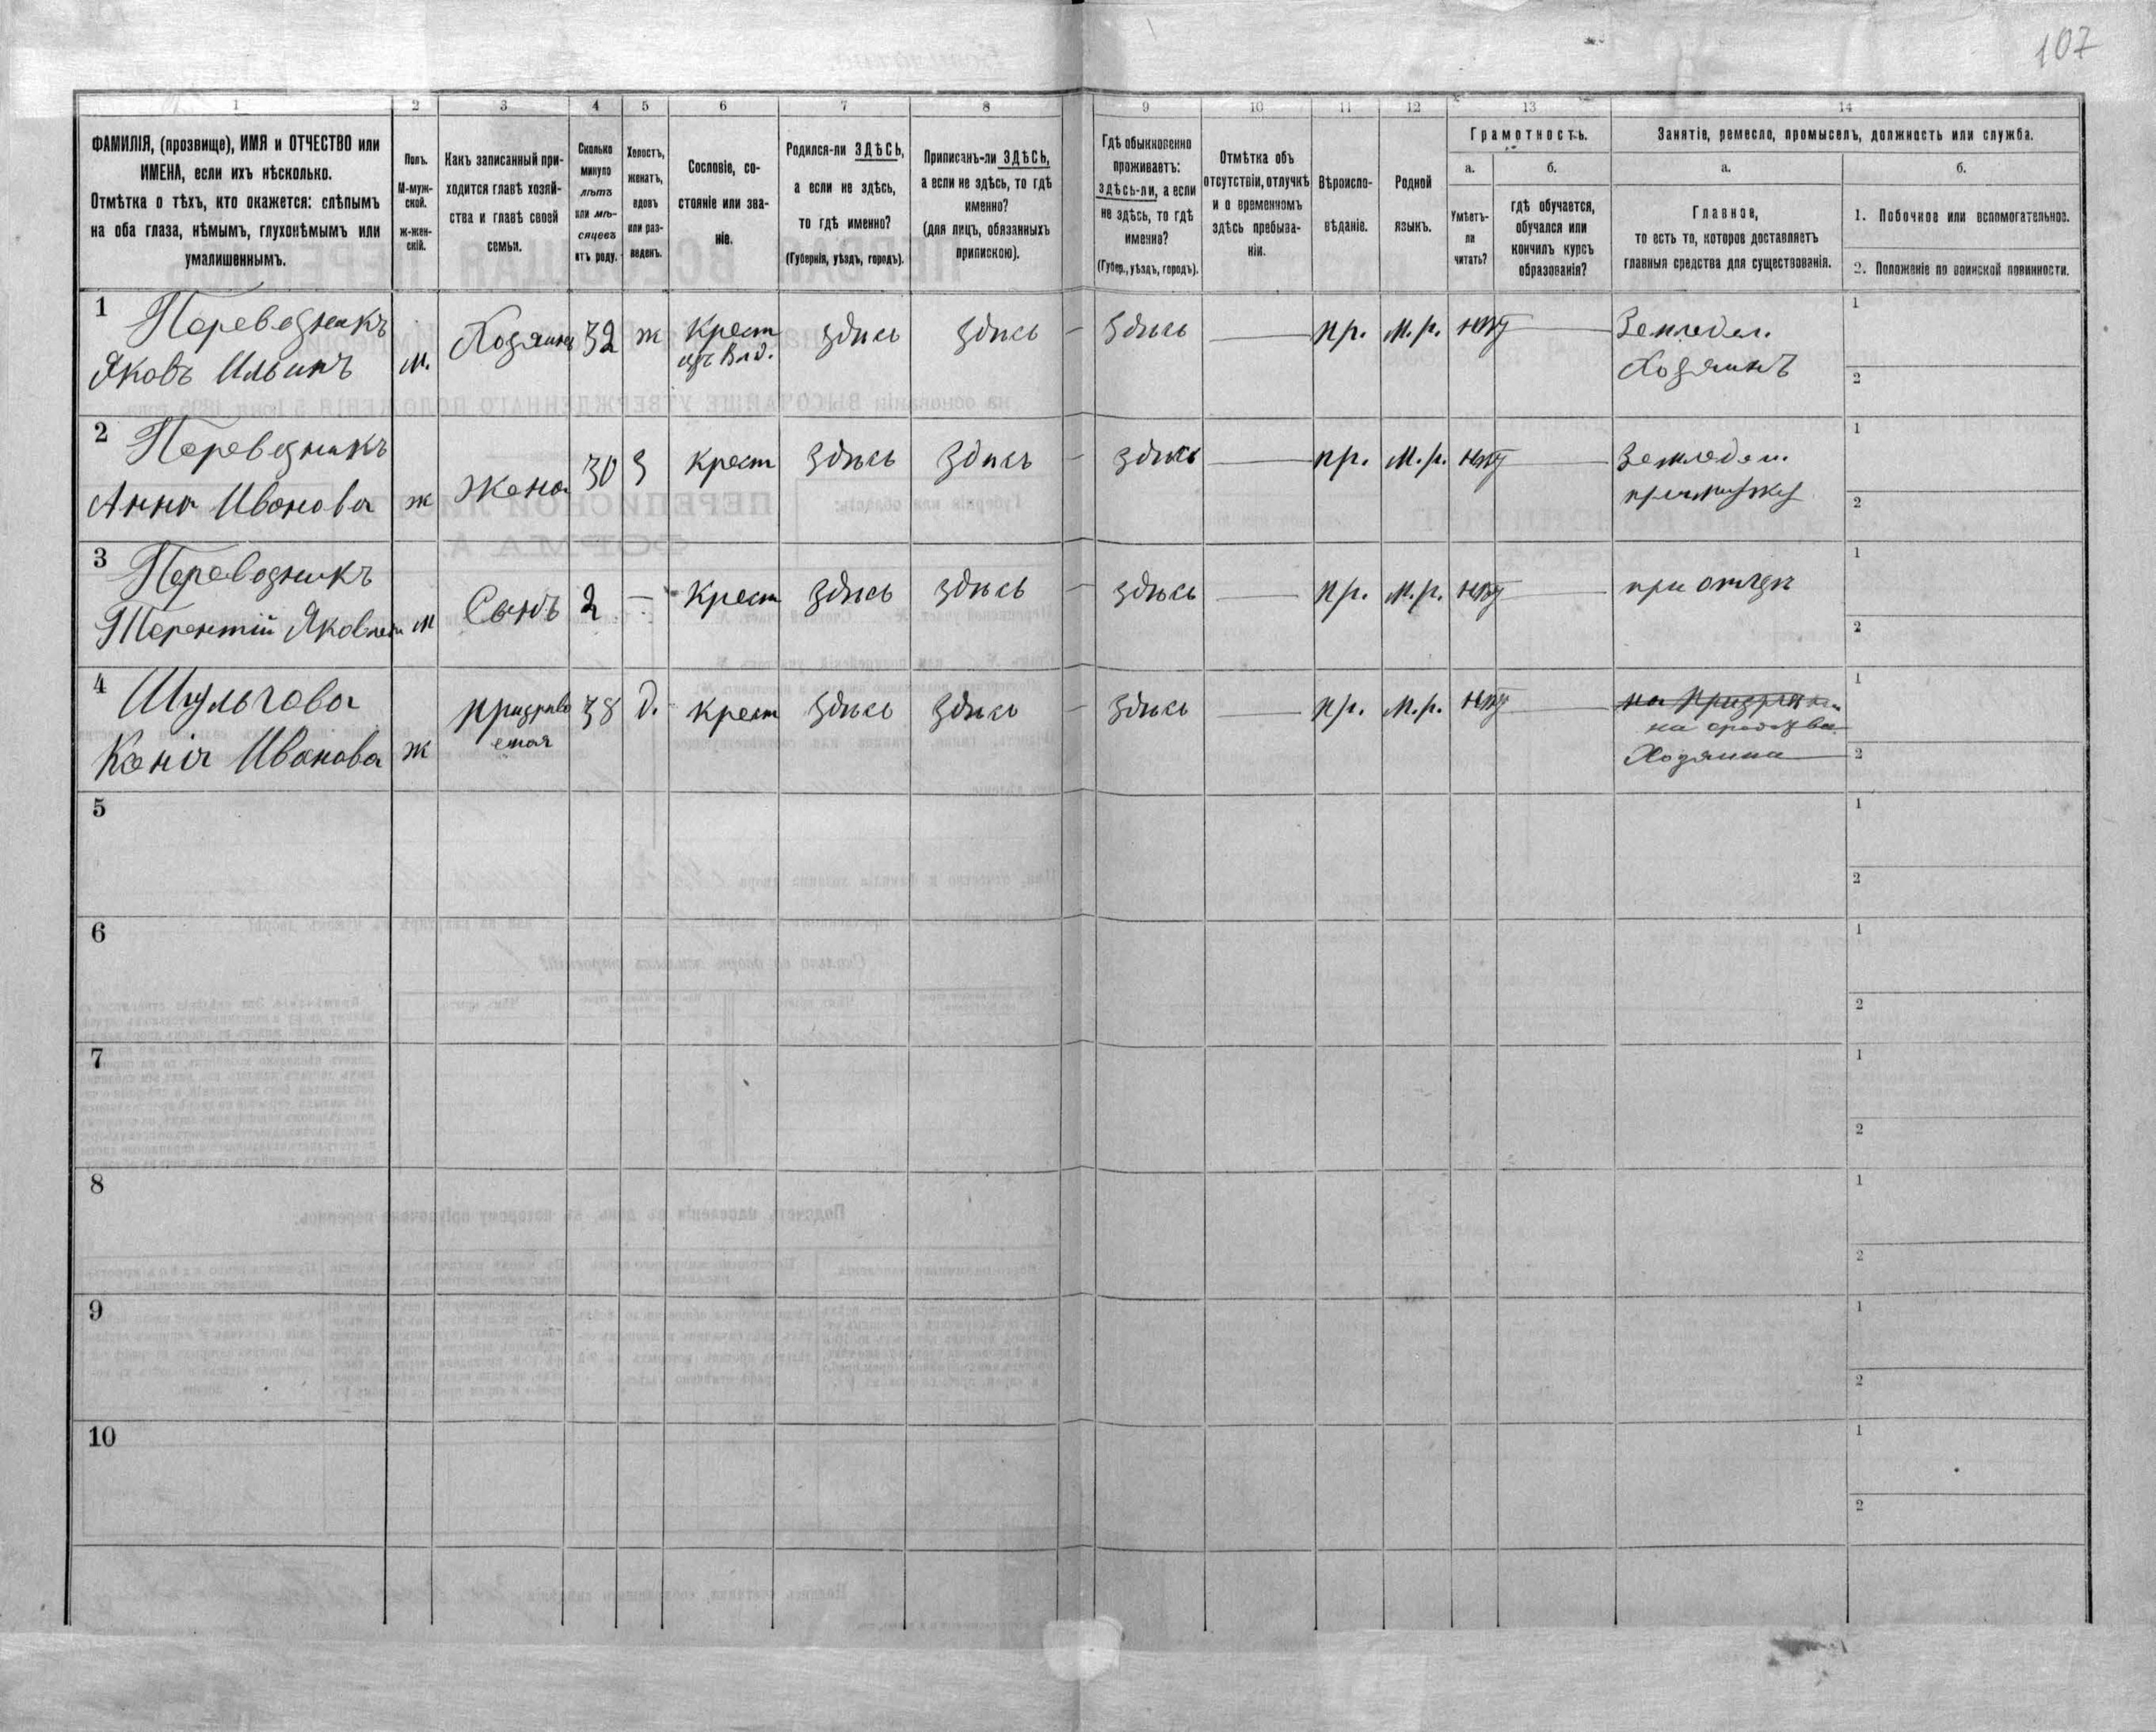 107
1
2
3
4
5
6
7
8
9
10
11
12
13
14
ФАМИЛІЯ, (прозвище), ИМЯ и ОТЧЕСТВО или
ИМЕНА, если ихъ нѣсколько.
Отмѣтка о тѣхъ, кто окажется: слѣпымъ
на оба глаза, нѣмымъ, глухонѣмымъ или
умалишеннымъ.
Полъ.
М-муж-
ской.
ж-жен-
скій.
Какъ записанный при-
ходится главѣ хозяй-
ства и главѣ своей
семьи.
Сколько
минуло
лѣтъ
или мѣ-
сяцевъ
отъ роду.
Холостъ,
женатъ,
вдовъ
или раз-
веденъ.
Сословіе, со-
стояніе или зва-
ніе.
Родился-ли ЗДѢСЬ,
а если не здѣсь,
то гдѣ именно?
(Губернія, уѣздъ, городъ).
Приписанъ-ли ЗДѢСЬ,
а если не здѣсь, то гдѣ
именно?
(для лицъ, обязанныхъ
припискою).
Гдѣ обыкновенно
проживаетъ:
здѣсь-ли, а если
не здѣсь, то гдѣ
именно?
(Губер., уѣздъ, городъ).
Отмѣтка объ
отсутствіи, отлучкѣ
и о временномъ
здѣсь пребыва-
ніи.
Вѣроиспо-
вѣданіе.
Родной
языкъ.
Грамотность.
а.
Умѣетъ-
ли
читать?
б.
гдѣ обучается,
обучался или
кончилъ курсъ
образованія?
Занятіе, ремесло, промыселъ, должность или служба.
а.
Главное,
то есть то, которое доставляетъ
главныя средства для существованія.
б.
1. Побочное или вспомогательное.
2. Положеніе по воинской повинности.
1 Переводникъ
Яковъ Ильинъ
м.
Хозяинъ
32
ж
Крест
изъ влд.
здѣсь
здѣсь
здѣсь
пр.
м.р.
нѣт
Земледел.
Хозяинъ
1
2
2 Переводникъ
Анна Иванова
ж
Жена
30
з
крест
здѣсь
здѣсь
здѣсь
пр.
м.р.
нѣт
Земледел.
при мужу
1
2
3 Переводникъ
Терентій Яковлевъ
м
Сынъ
2
-
Крест
здѣсь
здѣсь
здѣсь
пр.
м.р.
нѣт
при отцѣ
1
2
4 Шульгова
Ксенія Иванова
ж
призрева
емая
38
д.
крест
здѣсь
здѣсь
здѣсь
пр.
м.р.
нѣт
на средства
Хозяина
1
2
5
1
2
6
1
2
7
1
2
8
1
2
9
1
2
10
1
2